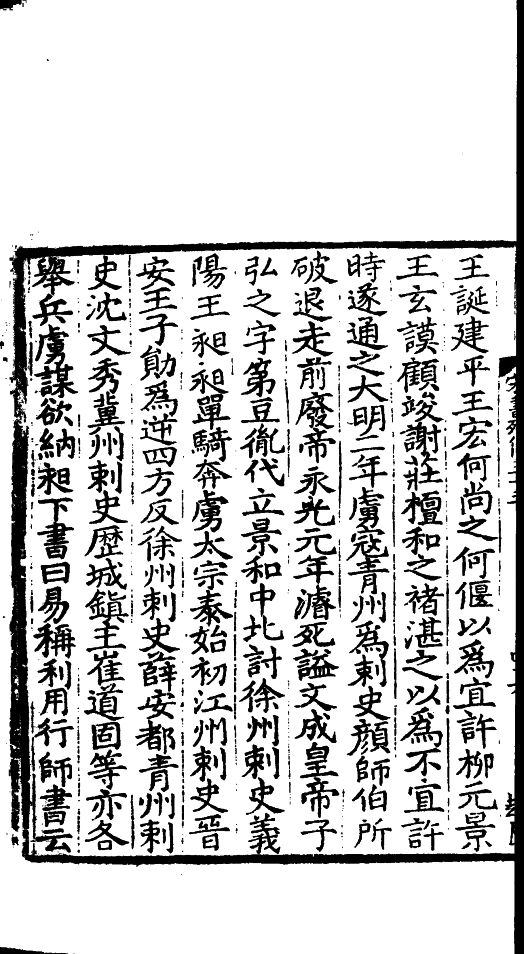 王誕建平王宏何尚之何偃以爲宜許柳元景
王玄謨顧竣謝莊檀和之褚湛之以爲不宜許
時遂通之大明二年虜寇青州爲刺史顏師伯所
破退走前廢帝永光元年濬死謚文成皇帝子
弘之字第豆胤代立景和中北討徐州刺史義
陽王昶昶單騎奔虜太宗泰始初江州刺史晉
安王子勛爲逆四方反徐州刺史薛安都青州刺
史沈文秀冀州刺史歷城鎮主崔道固等亦各
舉兵虜謀欲納昶下書曰易稱利用行師書云